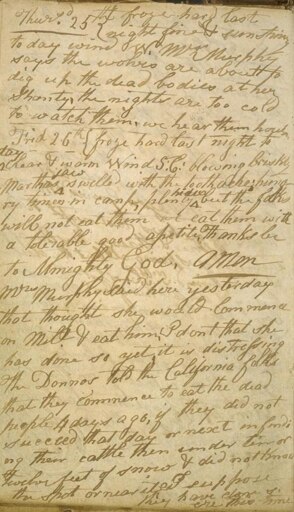 Thursd. 25th froze hard last
night fine & sunshiny
to day wind W. Mrs Murphy
says the wolves are about to
dig up the dead bodies at her
shanty, the nights are too cold
to watch them, we hear them howl
Frid 26th froze hard last night to
day clear & warm Wind S.E. blowing briskly
Marthas jaw swelled with the toothache; hungry
times in camp, plenty hides but the folks
will not eat them we eat them with
a tolerable good apetite. Thanks be
to Almighty God. Amen
Mrs Murphy said here yesterday
that thought she would commence
on Milt. & eat him. I dont that she
has done so yet, it is distressing
The Donnos told the California folks
that they commence to eat the dead
people 4 days ago, if they did not
succeed that day or next in find
ing their cattle then under ten or
twelve feet of snow & did not know
the spot or near it, I suppose
they have done so
ere this time